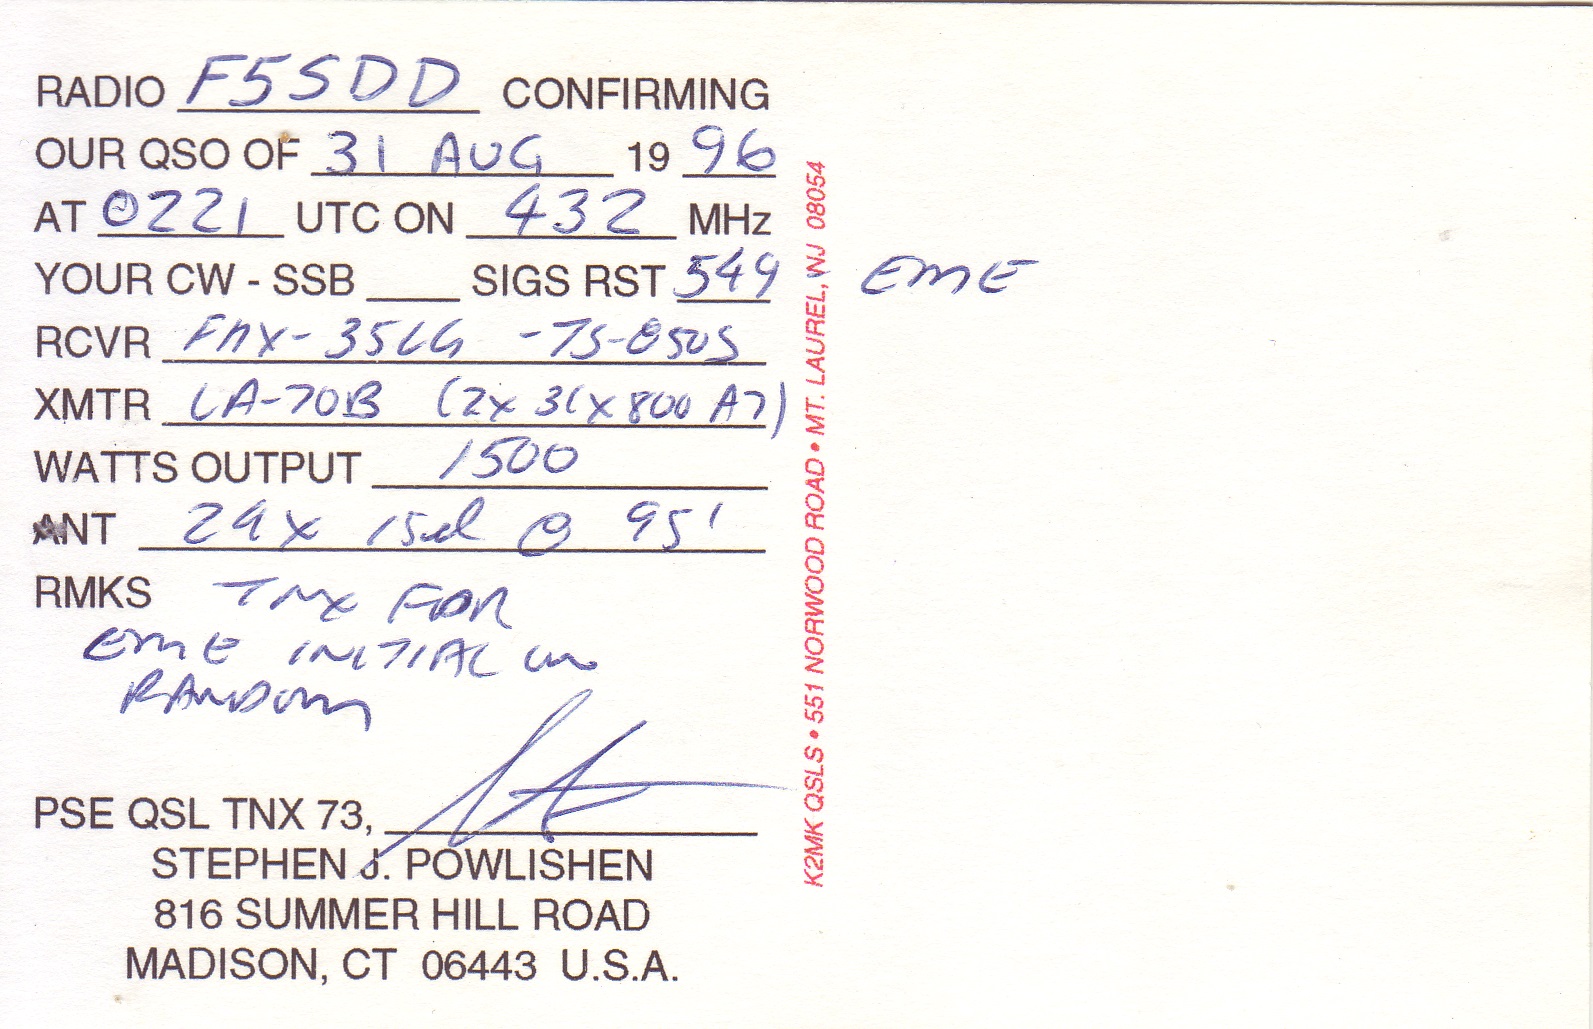 RADIO F5SDD CONFIRMING
OUR QSO OF 31 AUG 1996
AT 0221 UTC ON 432 MHz
YOUR CW - SSB ____ SIGS RST 549 - EME
RCVR FHX-35LG -TS-850S
XMTR LA-70B (2x 3CX800A7)
WATTS OUTPUT 1500
ANT 24x 15el @ 95'
RMKS TNX FOR
EME INITIAL on
RANDOM
PSE QSL TNX 73,
STEPHEN J. POWLISHEN
816 SUMMER HILL ROAD
MADISON, CT 06443 U.S.A.
K2MK QSLS • 551 NORWOOD ROAD • MT. LAUREL, NJ 08054